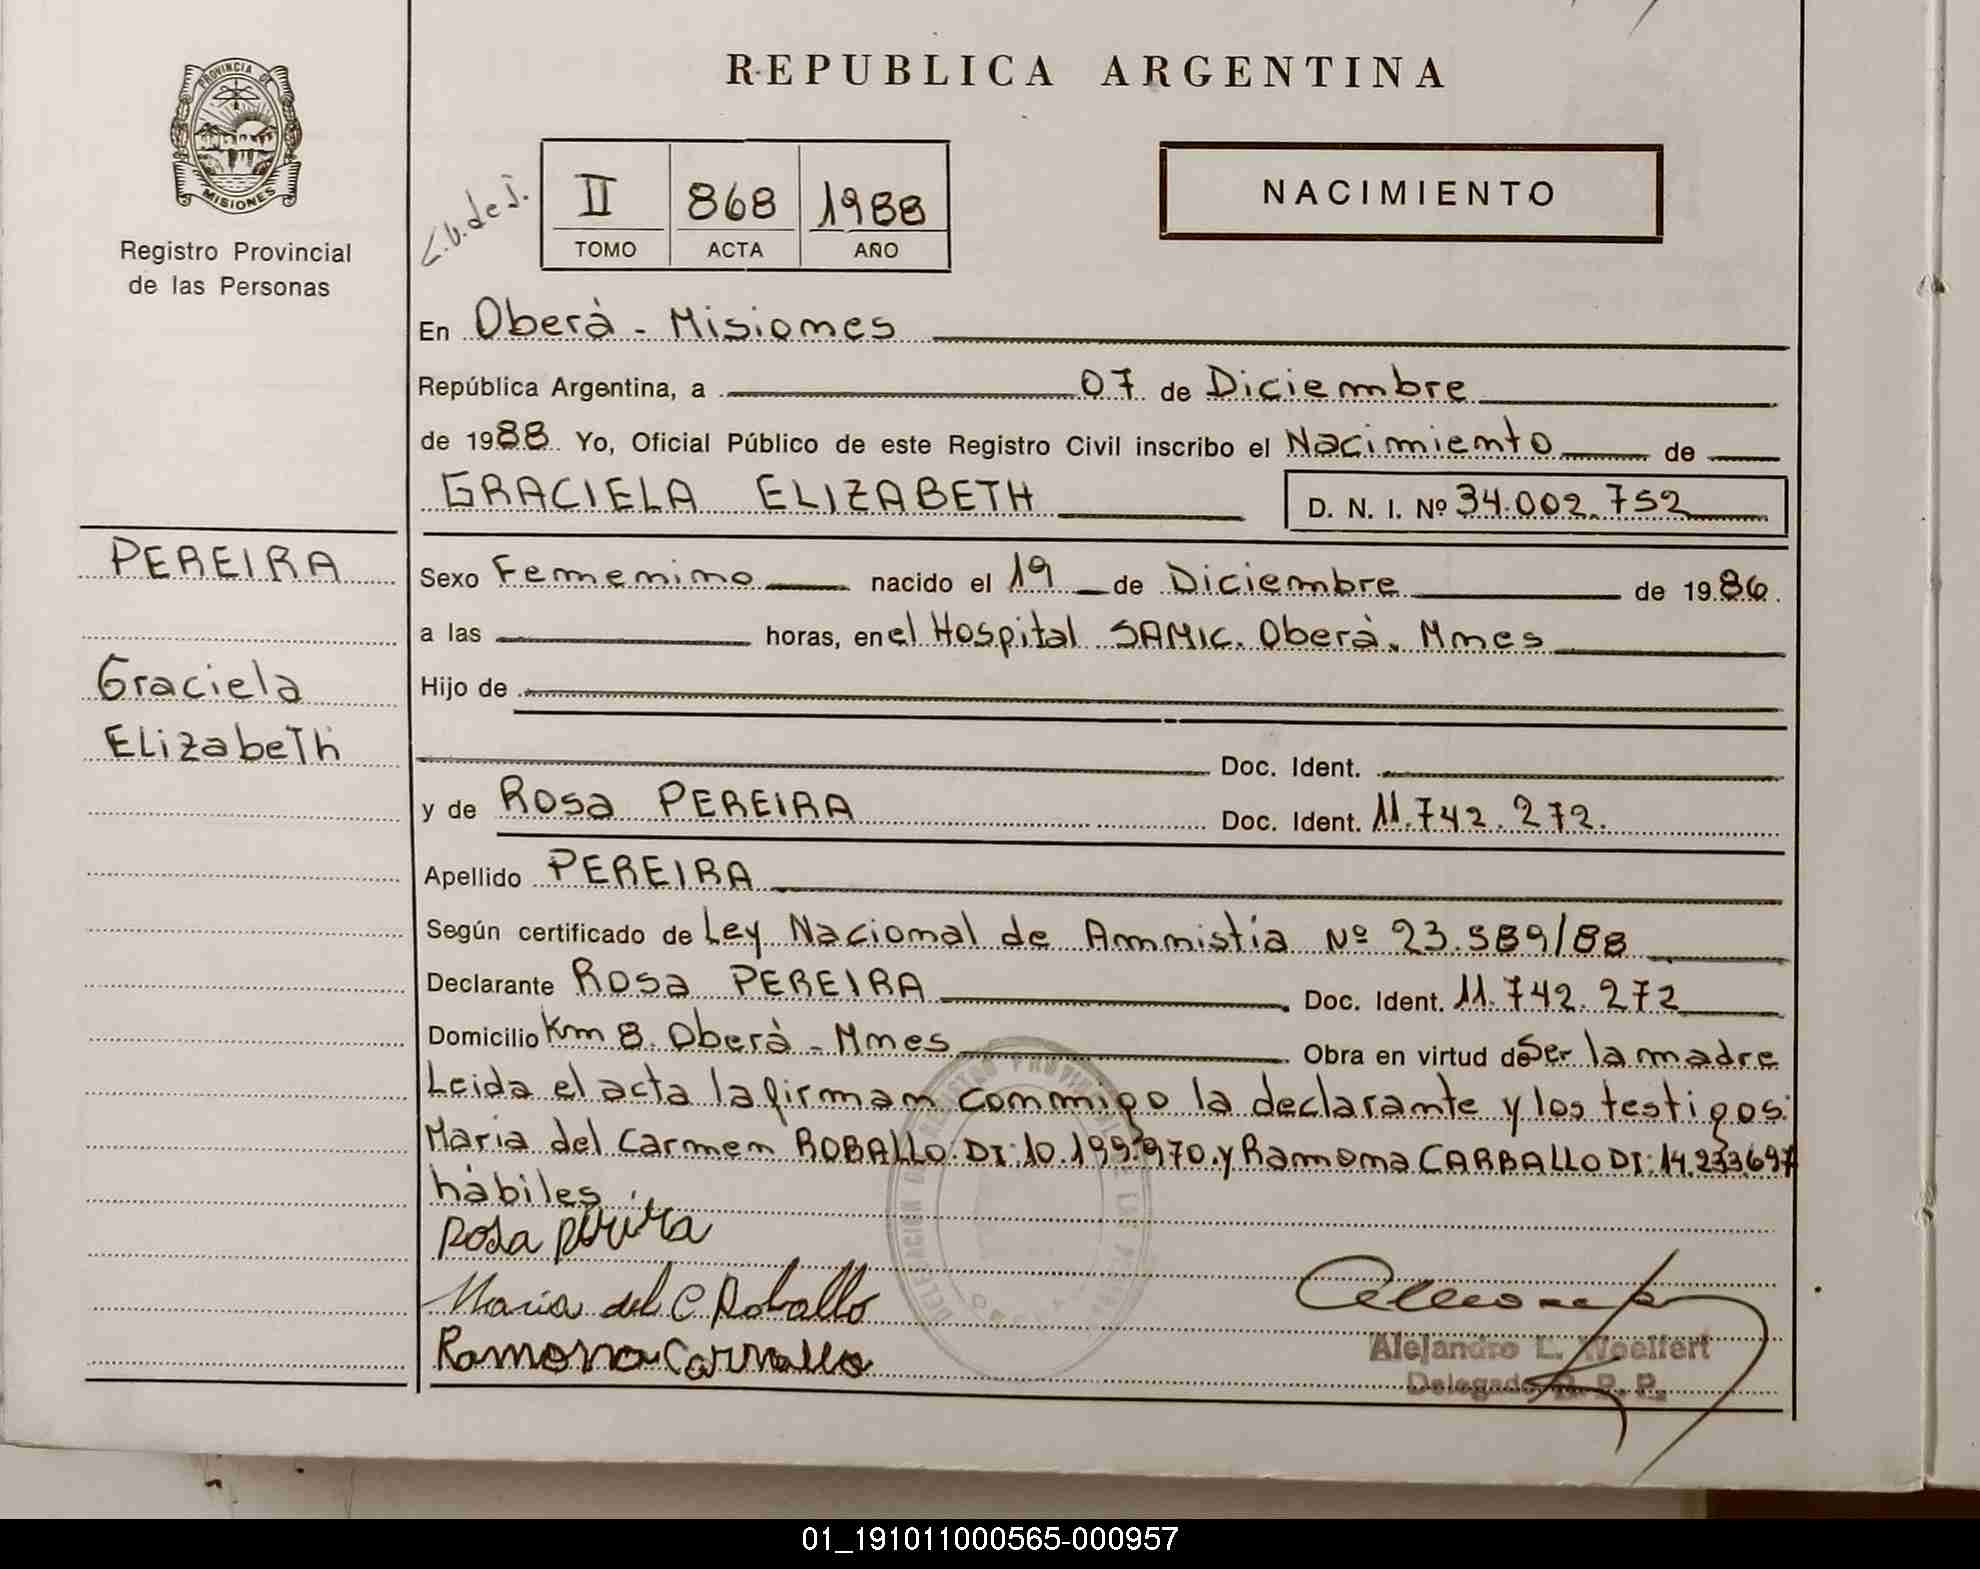 REPUBLICA ARGENTINA
PROVINCIA DE
MISIONES
Registro Provincial
de las Personas
II 868 1988
TOMO ACTA AÑO
NACIMIENTO
En Oberà - Misiones
República Argentina, a 07 de Diciembre
de 1988 Yo, Oficial Público de este Registro Civil inscribo el Nacimiento de
GRACIELA ELIZABETH D. N. I. Nº 34.002.752
PEREIRA
Graciela
Elizabeth
Sexo Femenino nacido el 19 de Diciembre de 1986.
a las horas, en el Hospital SAMIC. Oberà. Mnes
Hijo de
Doc. Ident.
y de Rosa PEREIRA Doc. Ident. 11.742.272.
Apellido PEREIRA
Según certificado de Ley Nacional de Amnistia Nº 23.589/88
Declarante Rosa PEREIRA Doc. Ident. 11.742.272
Domicilio Km 8. Oberà - Mnes Obra en virtud de Ser la madre
Leida el acta la firman conmigo la declarante y los testigos:
Maria del Carmen ROBALLO. DI: 10.199.970. y Ramona CARBALLO DI: 14.233.697
hàbiles.
Rosa Pereira
Maria del C. Roballo
Ramona Carvallo
Alejandro L. Woelfert
Delegado R. P. P.
01_191011000565-000957